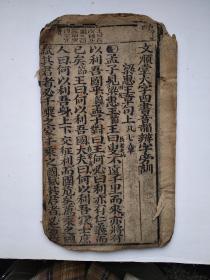 文順堂大字四書音韻辨字旁訓
梁惠王章句上凡七章
孟子見梁惠王王曰叟不遠千里而來亦將有
以利吾國乎孟子對曰王何必曰利亦有仁義而
已矣王曰何以利吾國大夫曰何以利吾家士庶
人曰何以利吾身上下交征利而國危矣萬乘之國
弒其君者必千乘之家千乘之國弒其君者